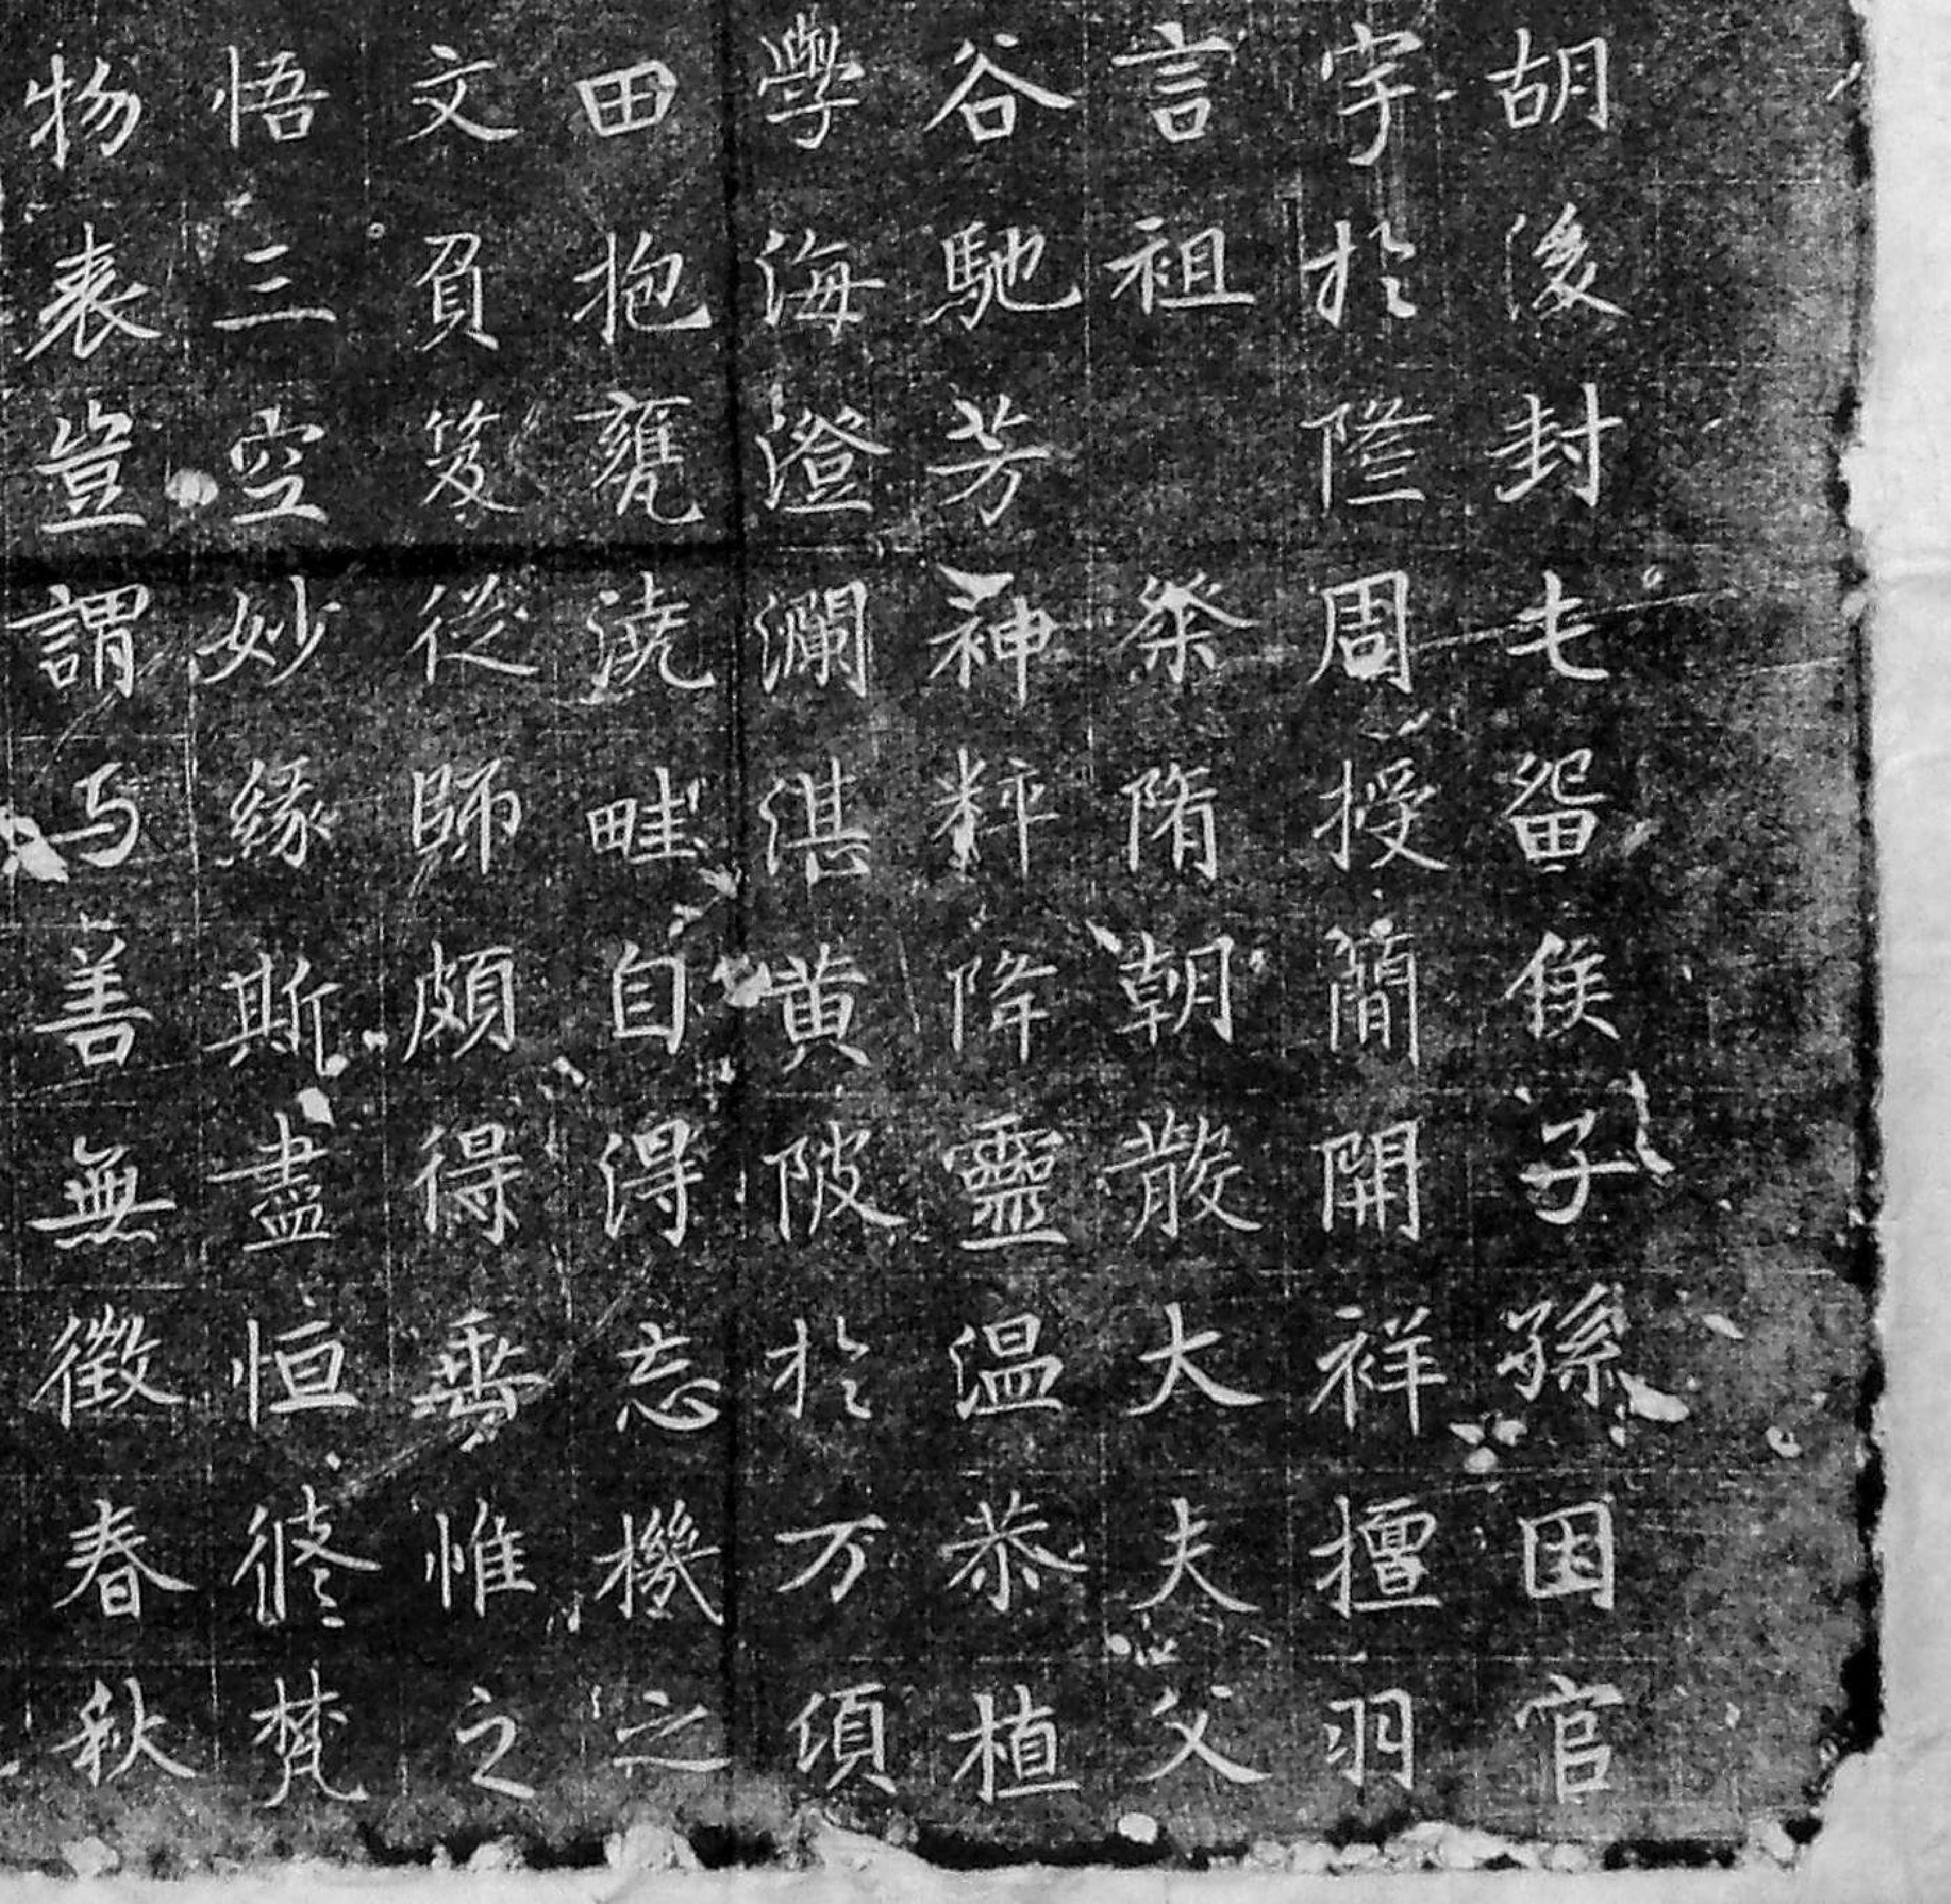 胡後封屯留侯子孫因官
宇於隆周授簡開祥擅羽
言祖 粲隋朝散大夫父
谷馳芳神粹降靈温恭植
學海澄瀾湛黄陂於万頃
田抱甕澆畦自得忘機之
文負笈從師頗得無惟之
悟三空妙緣斯盡恒修梵
物表豈謂与善無徵春秋